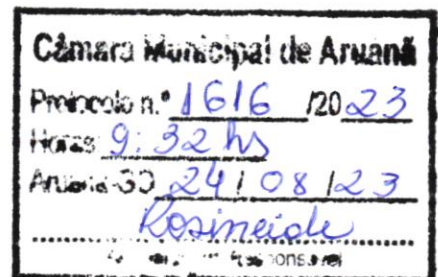 Câmara Municipal de Aruanã
Protocolo n.º 1616 /20 23
Horas 9:32 hs
Aruanã-GO 24 / 08 / 23
Rosineide